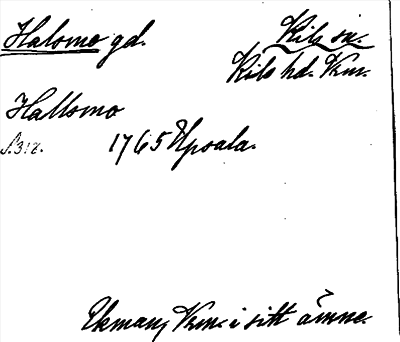 Halomo gd. Kils sn.
Kils hd. Vrm.
Hallomo
S.312. 1765 Upsala.
Ekman, Vrm. i sitt ämne.